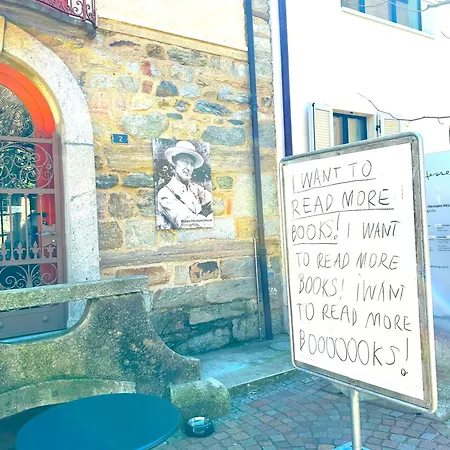 2
I WANT TO
READ MORE
BOOKS! I WANT
TO READ MORE
BOOKS! I WANT
TO READ MORE
BOOOOOKS!